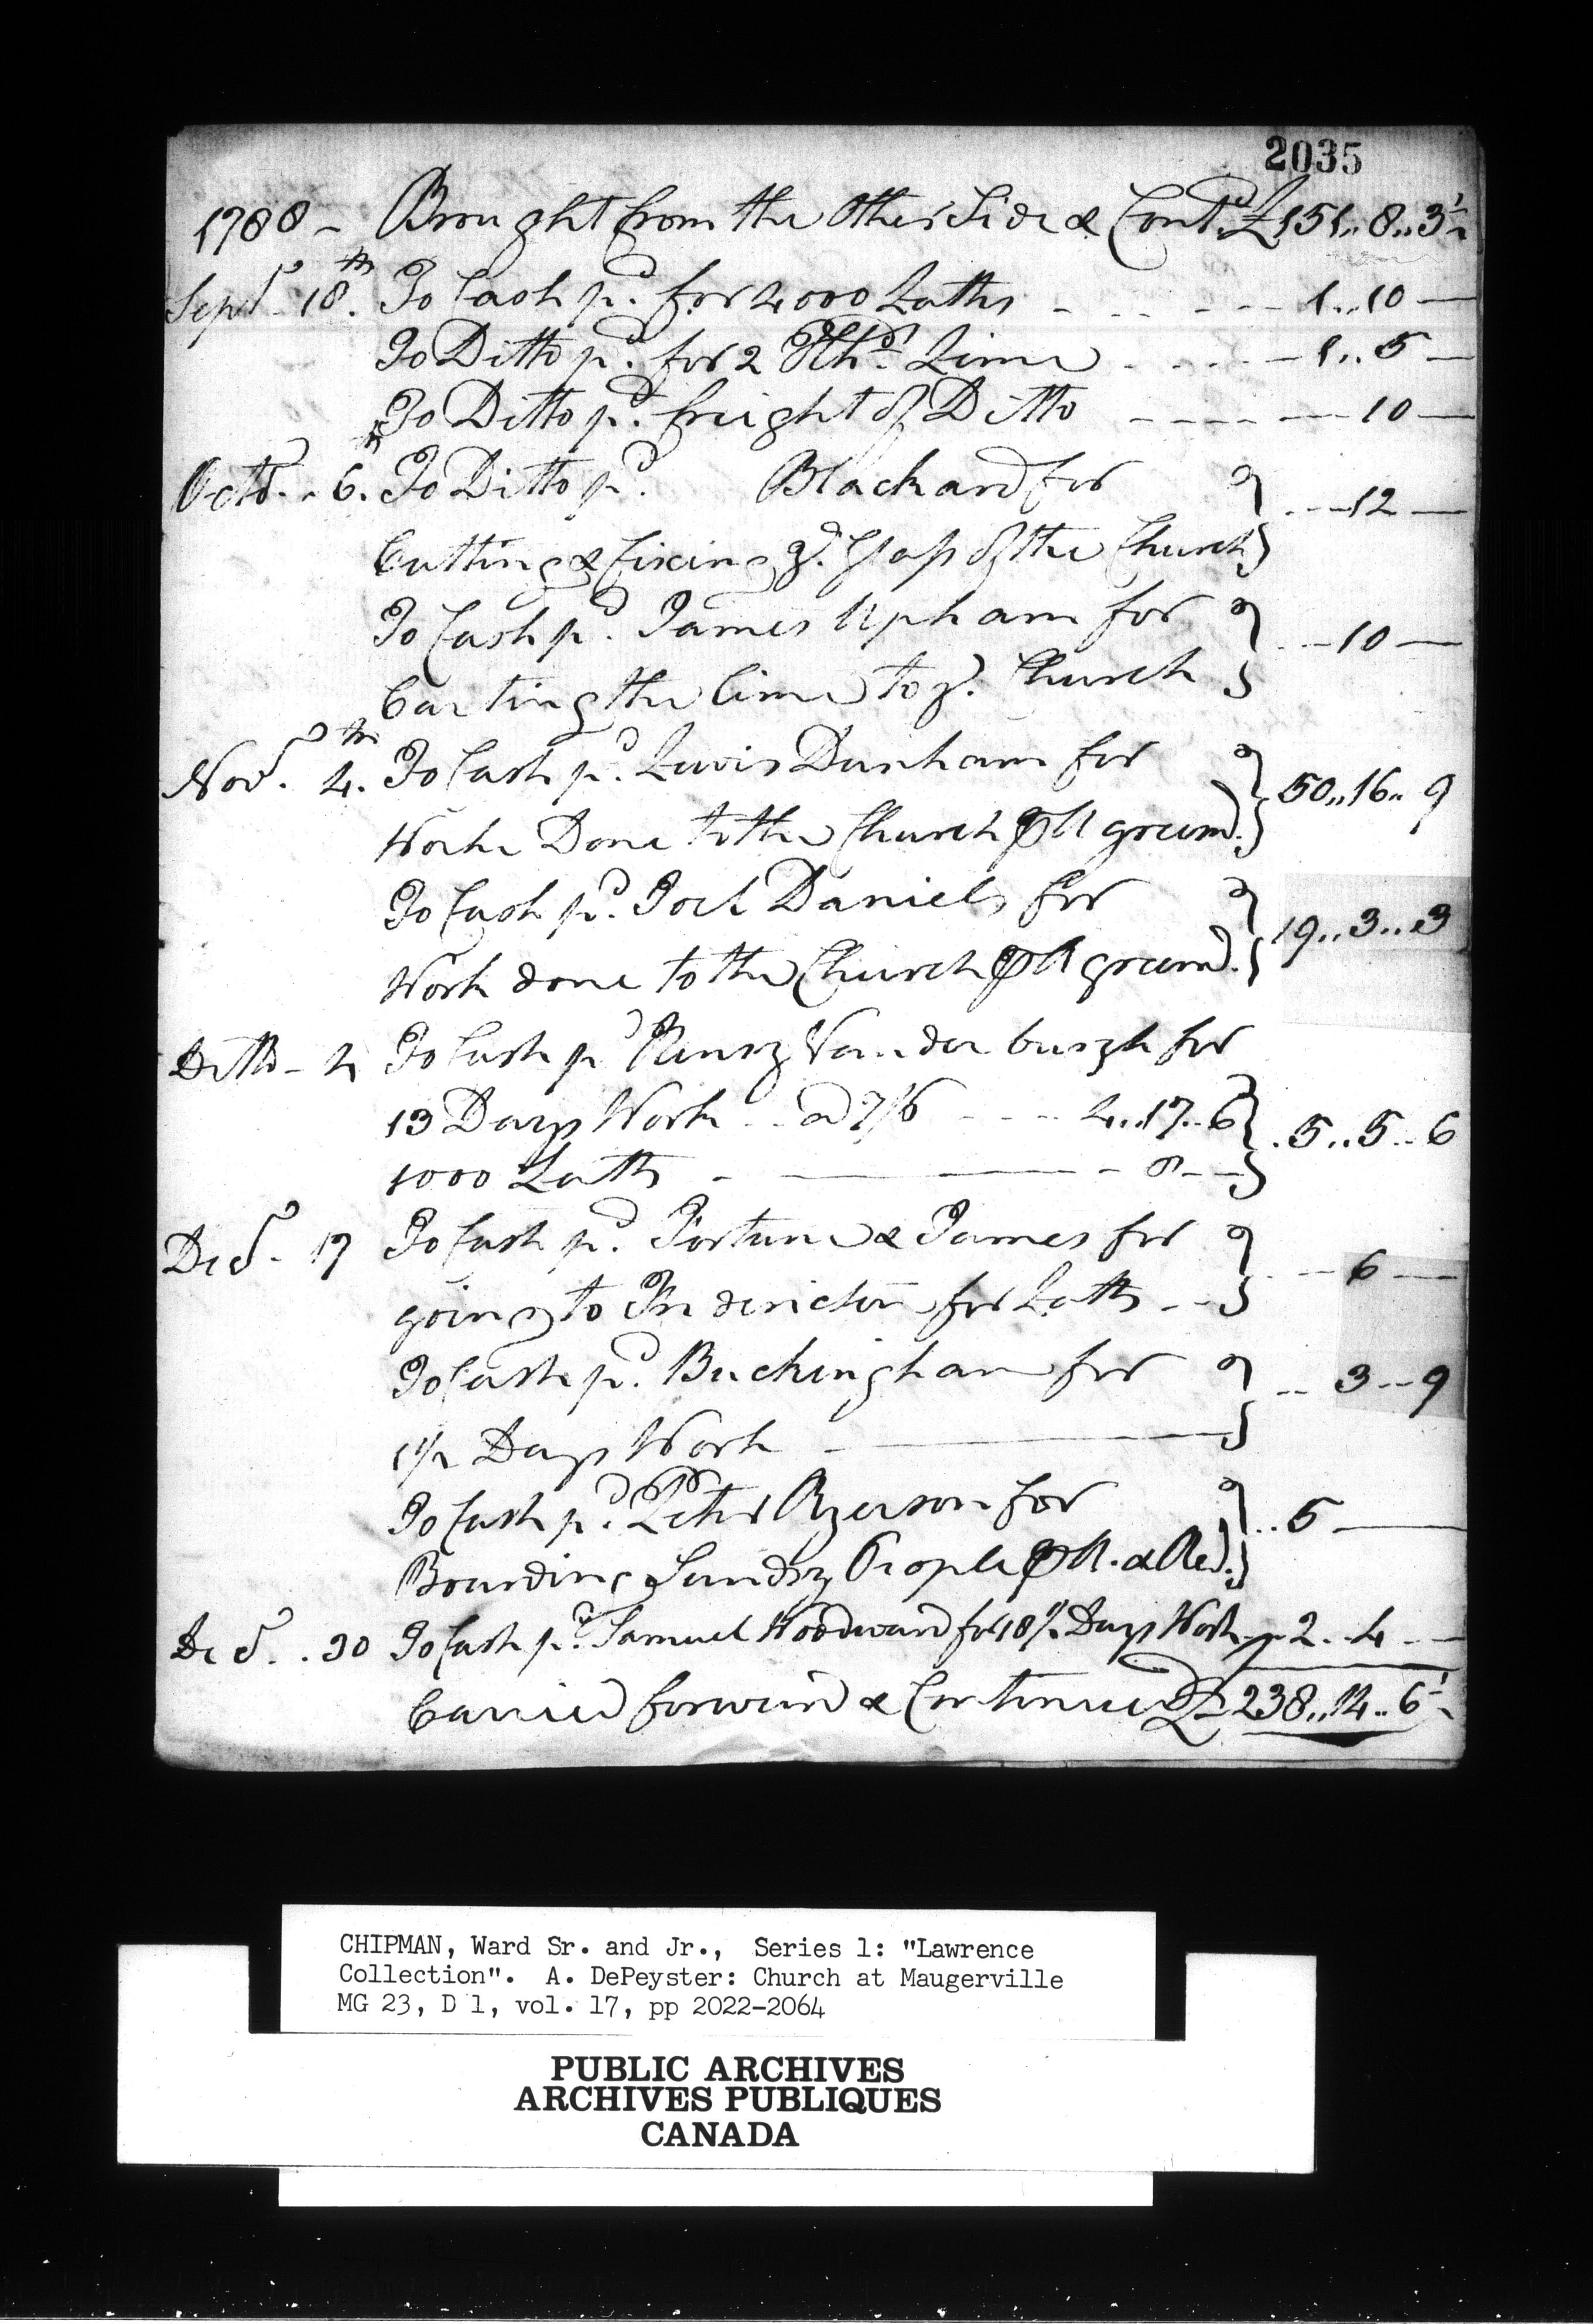 2035
1788 - Brought from the Other Side & Contd. £151..8..3½
Septr. 18th. To Cash pd. for 4000 Laths - - - - 1..10 —
To Ditto pd. for 2 Hhds. Lime - - - - 1..5 —
To Ditto pd. freight of Ditto - - - - 10 —
Octor. 6th. To Ditto pd. Blackard for
Cutting & fixing ye. Glass of the Church } - - 12 —
To Cash pd. James Upham for
Carting the lime to ye. Church } - - 10 —
Novr. 4th. To Cash pd. Lewis Dunham for
Worke Done to the Church ⅌ Agreemt. } 50..16..9
To Cash pd. Joel Daniels for
Work done to the Church ⅌ Agreemt. } 19..3..3
Ditto - 4 To Cash pd Henry Vanderburgh for
13 Days Work - a 7/6 - - - 4..17..6
1000 Lath - — 8 - - } . 5..5..6
Decr. 17 To Cash pd. Fortune & James for
going to Frederickton for Lath - - } - - 6 —
To Cash pd. Buckingham for
1½ Days Work - — } - - 3 - - 9
To Cash pd. Peter Ryerson for
Boarding Sundry People ⅌ A. & Red. } . . 5 —
Decr. . 30 To Cash pd. Samuel Woodward for 18⅓ Days Work - 2..4 - -
Carried forward & Continued £238..14..6½
CHIPMAN, Ward Sr. and Jr., Series 1: "Lawrence
Collection". A. DePeyster: Church at Maugerville
MG 23, D 1, vol. 17, pp 2022-2064
PUBLIC ARCHIVES
ARCHIVES PUBLIQUES
CANADA